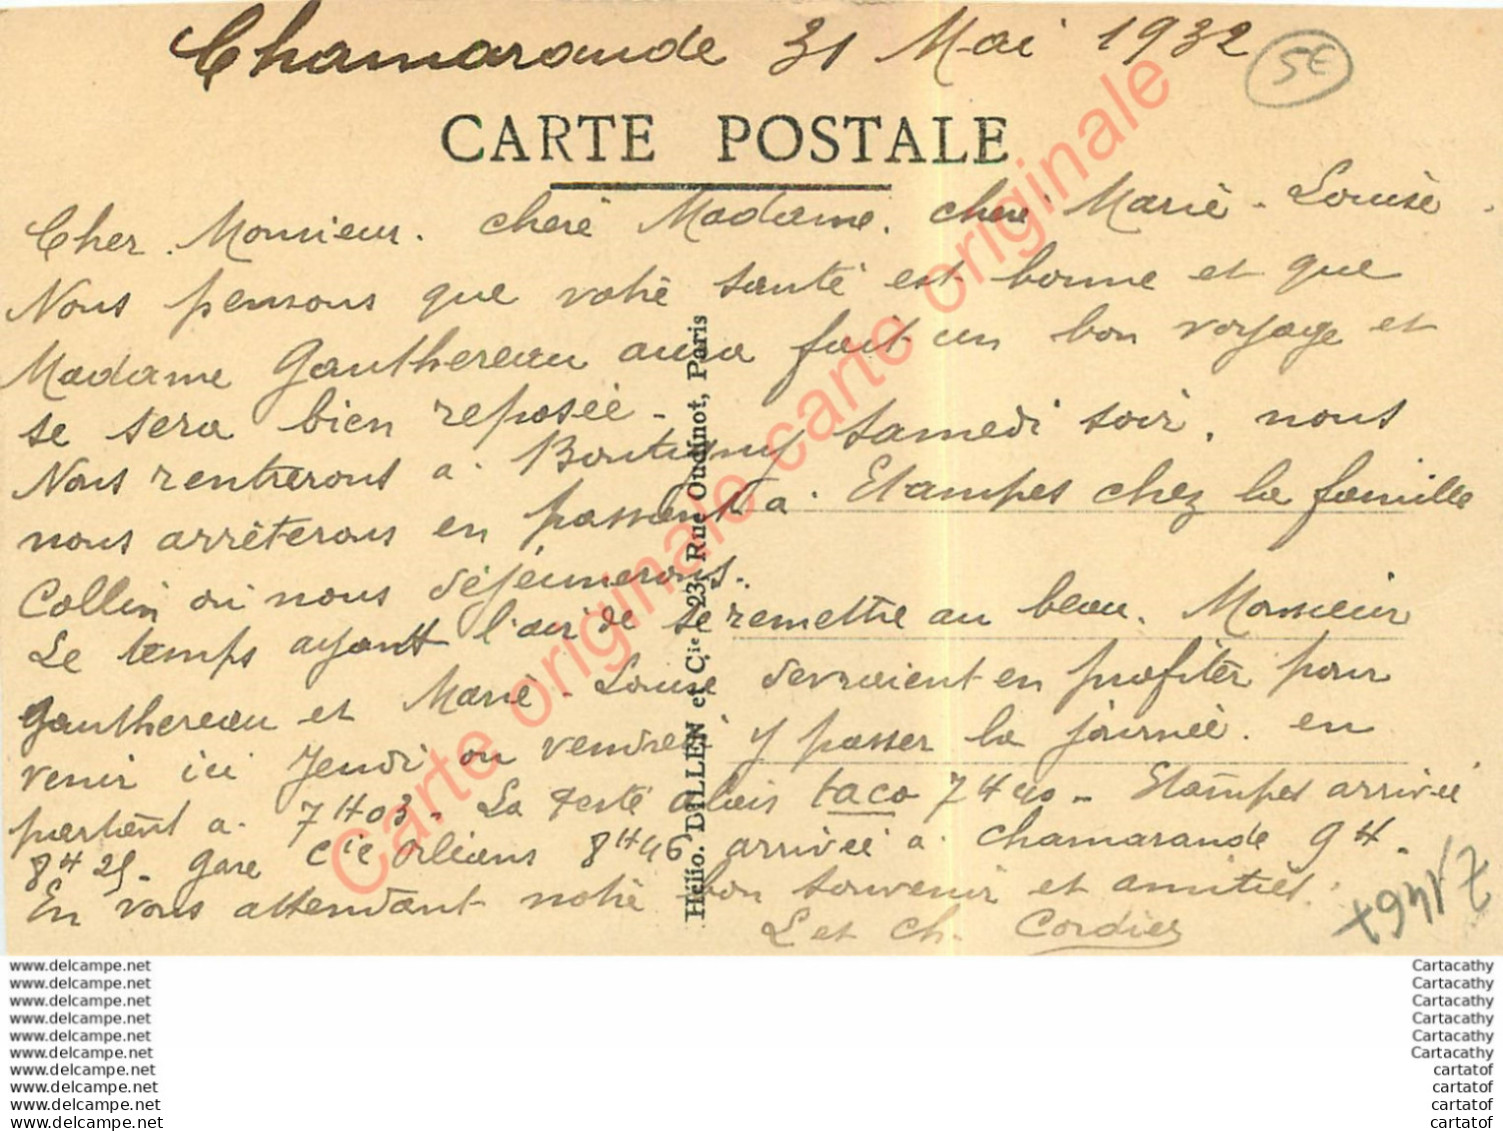 Chamarande 31 Mai 1932
5€
CARTE POSTALE
Cher Monsieur. chère Madame. chère Marie-Louise.
Nous pensons que votre santé est bonne et que
Madame Gauthereau aura fait un bon voyage et
se sera bien reposée -
Nous rentrerons à Boutigny samedi soir, nous
nous arrêterons en passant à Etampes chez la famille
Collin où nous déjeunerons.
Le temps ayant l'air de se remettre au beau. Monsieur
Gauthereau et Marie-Louise devraient en profiter pour
venir ici Jeudi ou vendredi y passer la journée. en
partant à 7H03 - La Ferté alais taco 7H40 - Etampes arrivée
8H25 - gare Cie Orléans 8H46 arrivée à chamarande 9H -
En vous attendant notre bon souvenir et amitiés.
L et Ch. Cordier
Hélio. DILLEN et Cie 23, Rue Oudinot, Paris
Carte originale carte originale carte originale
www.delcampe.net
www.delcampe.net
www.delcampe.net
www.delcampe.net
www.delcampe.net
www.delcampe.net
www.delcampe.net
www.delcampe.net
www.delcampe.net
www.delcampe.net
Cartacathy
Cartacathy
Cartacathy
Cartacathy
Cartacathy
Cartacathy
cartatof
cartatof
cartatof
cartatof